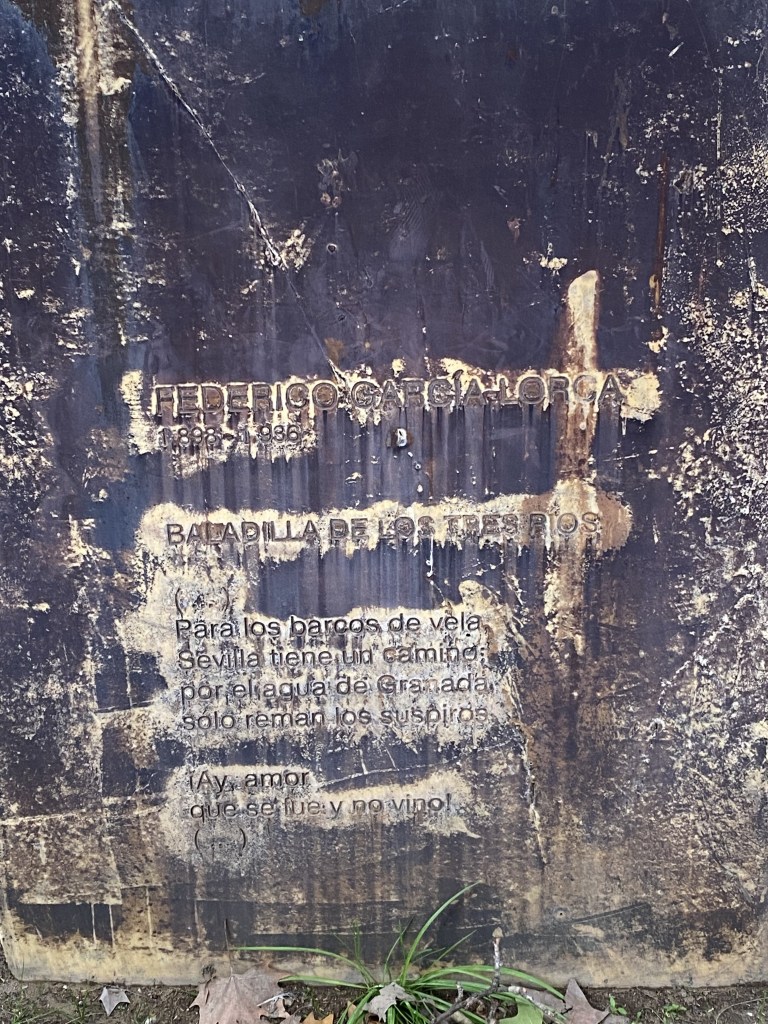 FEDERICO GARCÍA LORCA
1898-1936
BALADILLA DE LOS TRES RIOS
(...)
Para los barcos de vela,
Sevilla tiene un camino;
por el agua de Granada,
sólo reman los suspiros.
¡Ay, amor
que se fue y no vino!
(...)